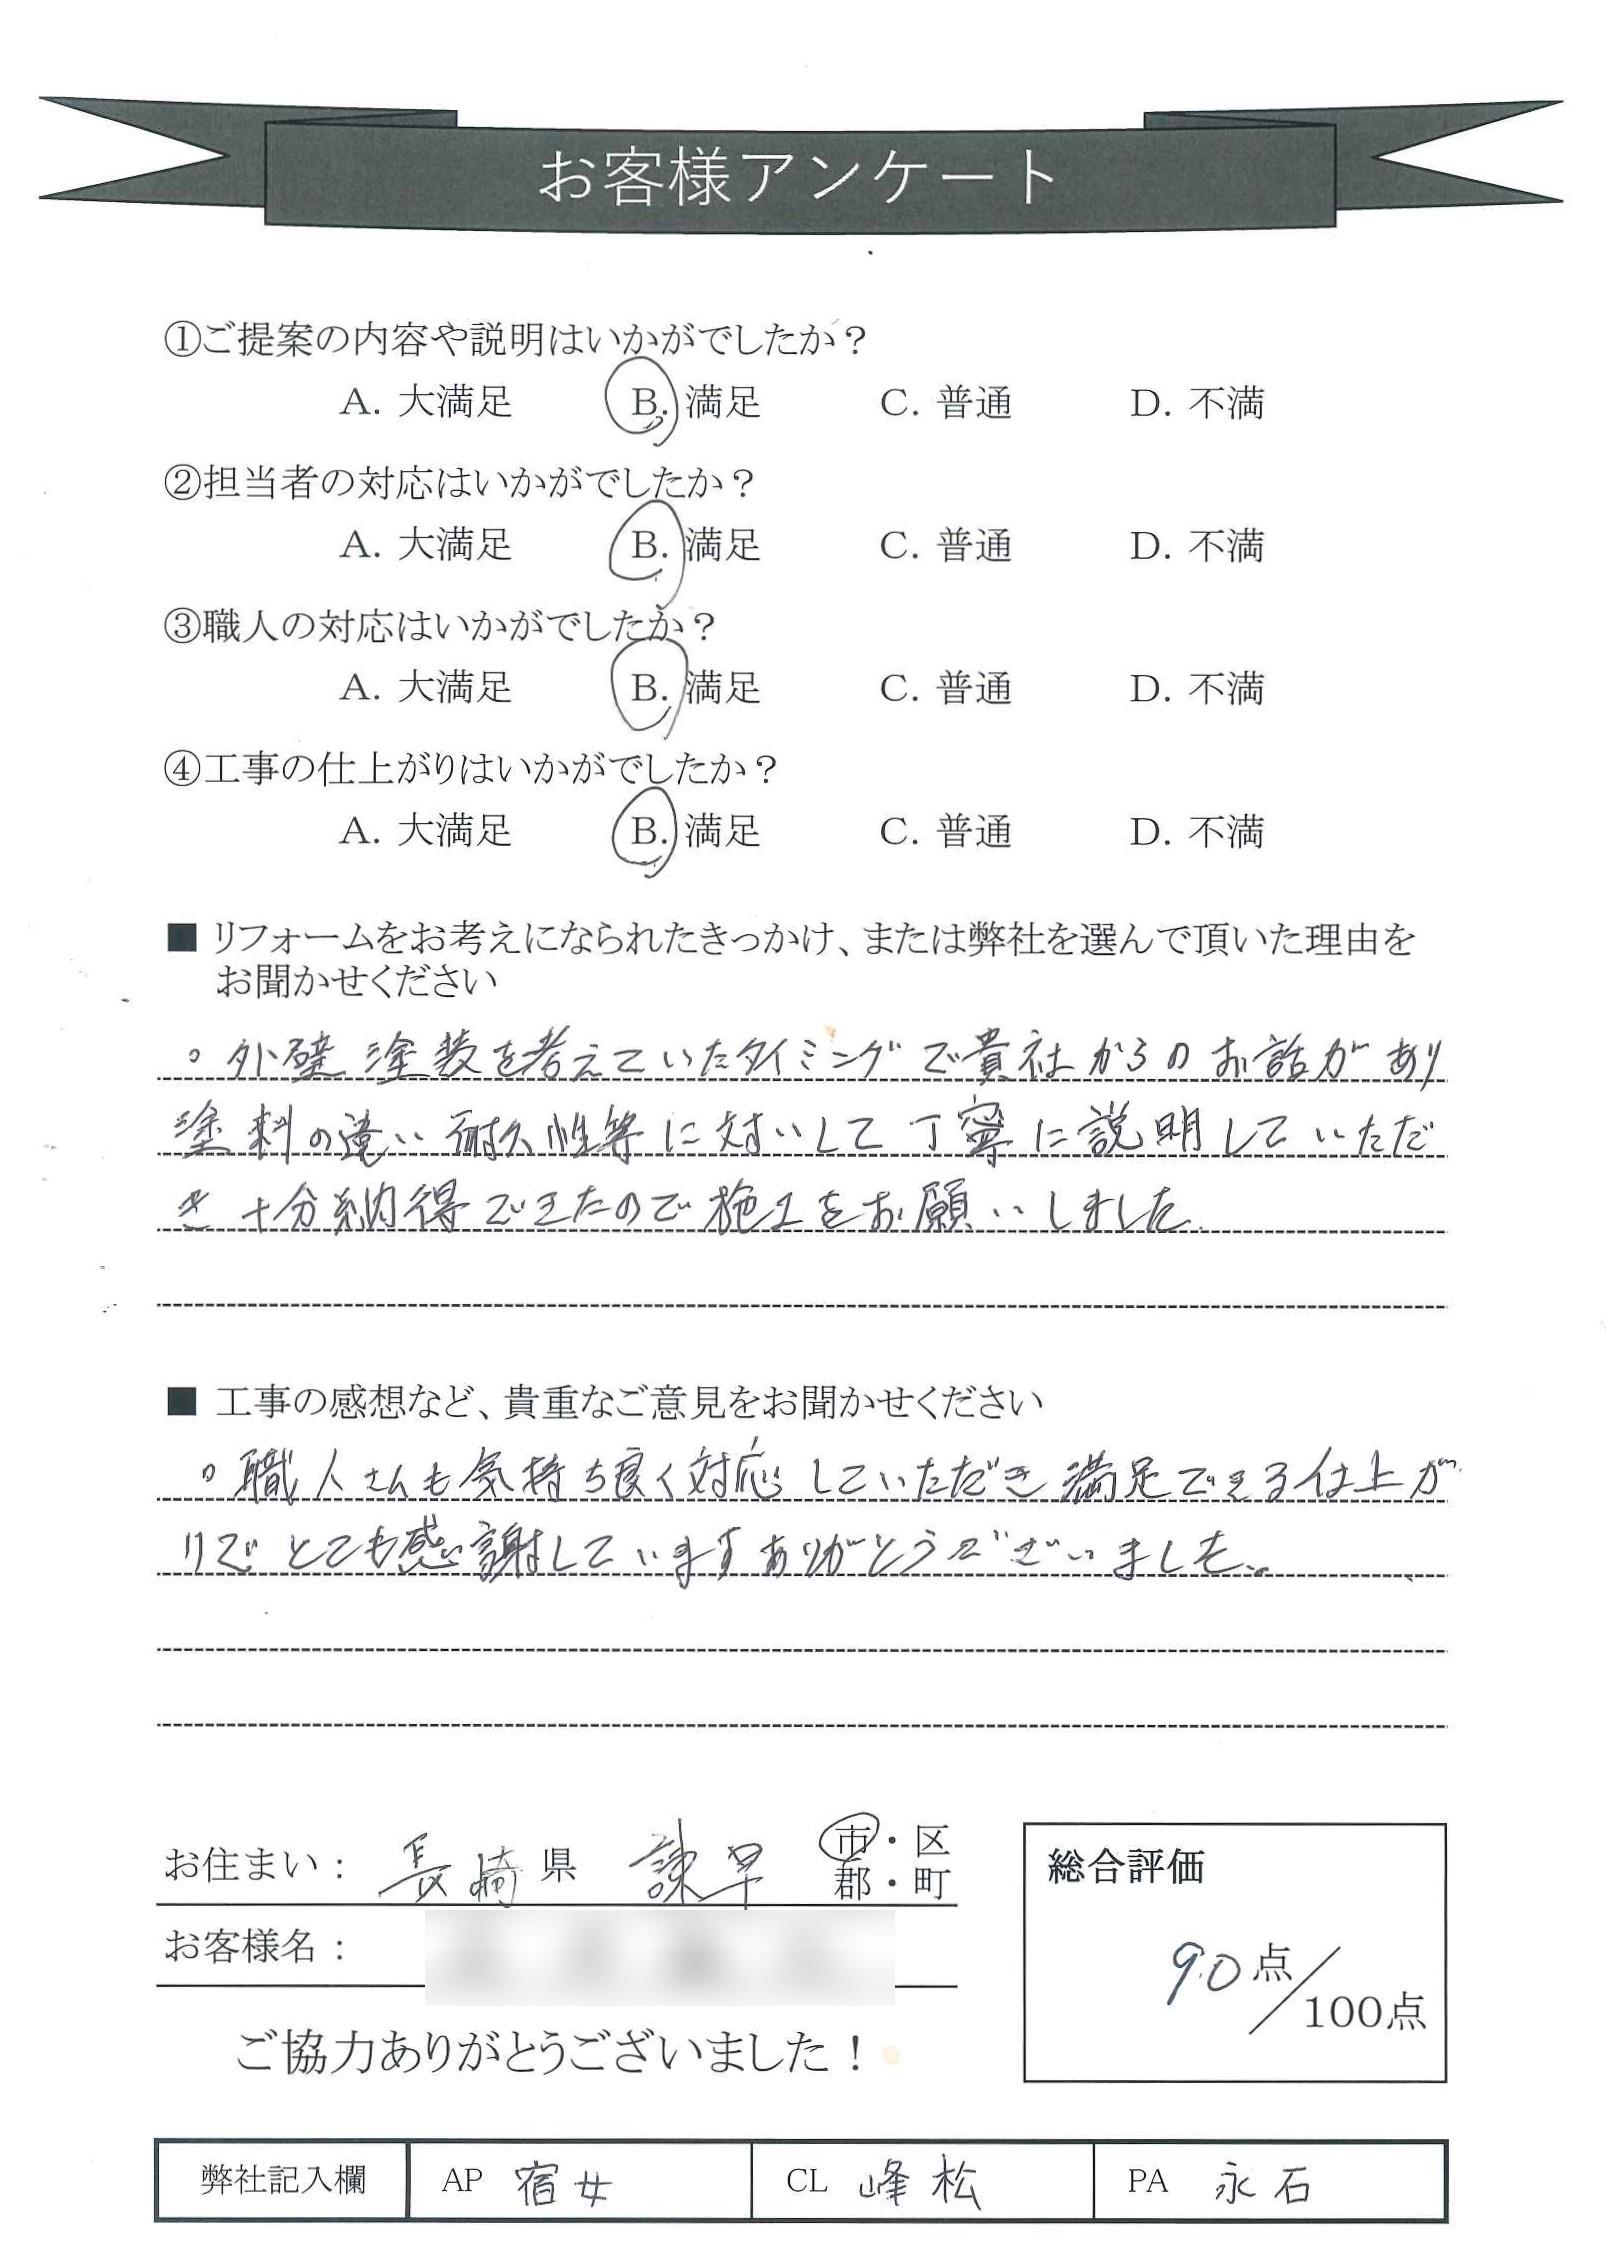 お客様アンケート
①ご提案の内容や説明はいかがでしたか？
A. 大満足 B. 満足 C. 普通 D. 不満
②担当者の対応はいかがでしたか？
A. 大満足 B. 満足 C. 普通 D. 不満
③職人の対応はいかがでしたか？
A. 大満足 B. 満足 C. 普通 D. 不満
④工事の仕上がりはいかがでしたか？
A. 大満足 B. 満足 C. 普通 D. 不満
■ リフォームをお考えになられたきっかけ、または弊社を選んで頂いた理由を
お聞かせください
。外壁塗装を考えていたタイミングで貴社からのお話があり
塗料の違い耐久性等に対いして丁寧に説明していただ
き十分納得できたので施工をお願いしました
■ 工事の感想など、貴重なご意見をお聞かせください
。職人さんも気持ち良く対応していただき満足できる仕上が
りでとても感謝していますありがとうございました。
お住まい： 長崎県 諫早 市・区
郡・町
お客様名：
総合評価
90点／100点
ご協力ありがとうございました！
弊社記入欄 AP 宿女 CL 峰松 PA 永石